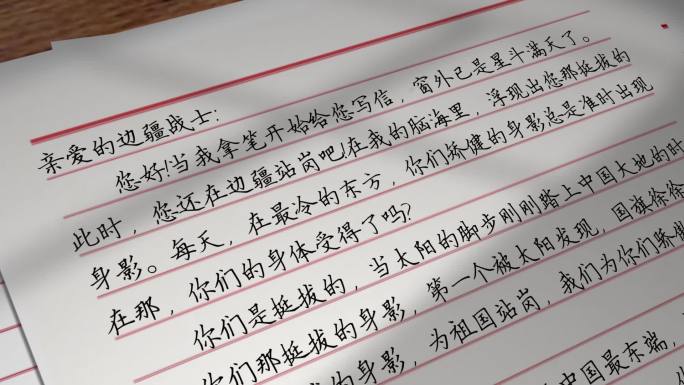 亲爱的边疆战士：
您好!当我拿笔开始给您写信，窗外已是星斗满天了。
此时，您还在边疆站岗吧!在我的脑海里，浮现出您那挺拔的
身影。每天，在最冷的东方，你们矫健的身影总是准时出现
在那，你们的身体受得了吗?
你们是挺拔的，当太阳的脚步刚刚踏上中国大地的时
你们那挺拔的身影，第一个被太阳发现，国旗徐徐
的身影，为祖国站岗，我们为你们骄傲
中国最东端，